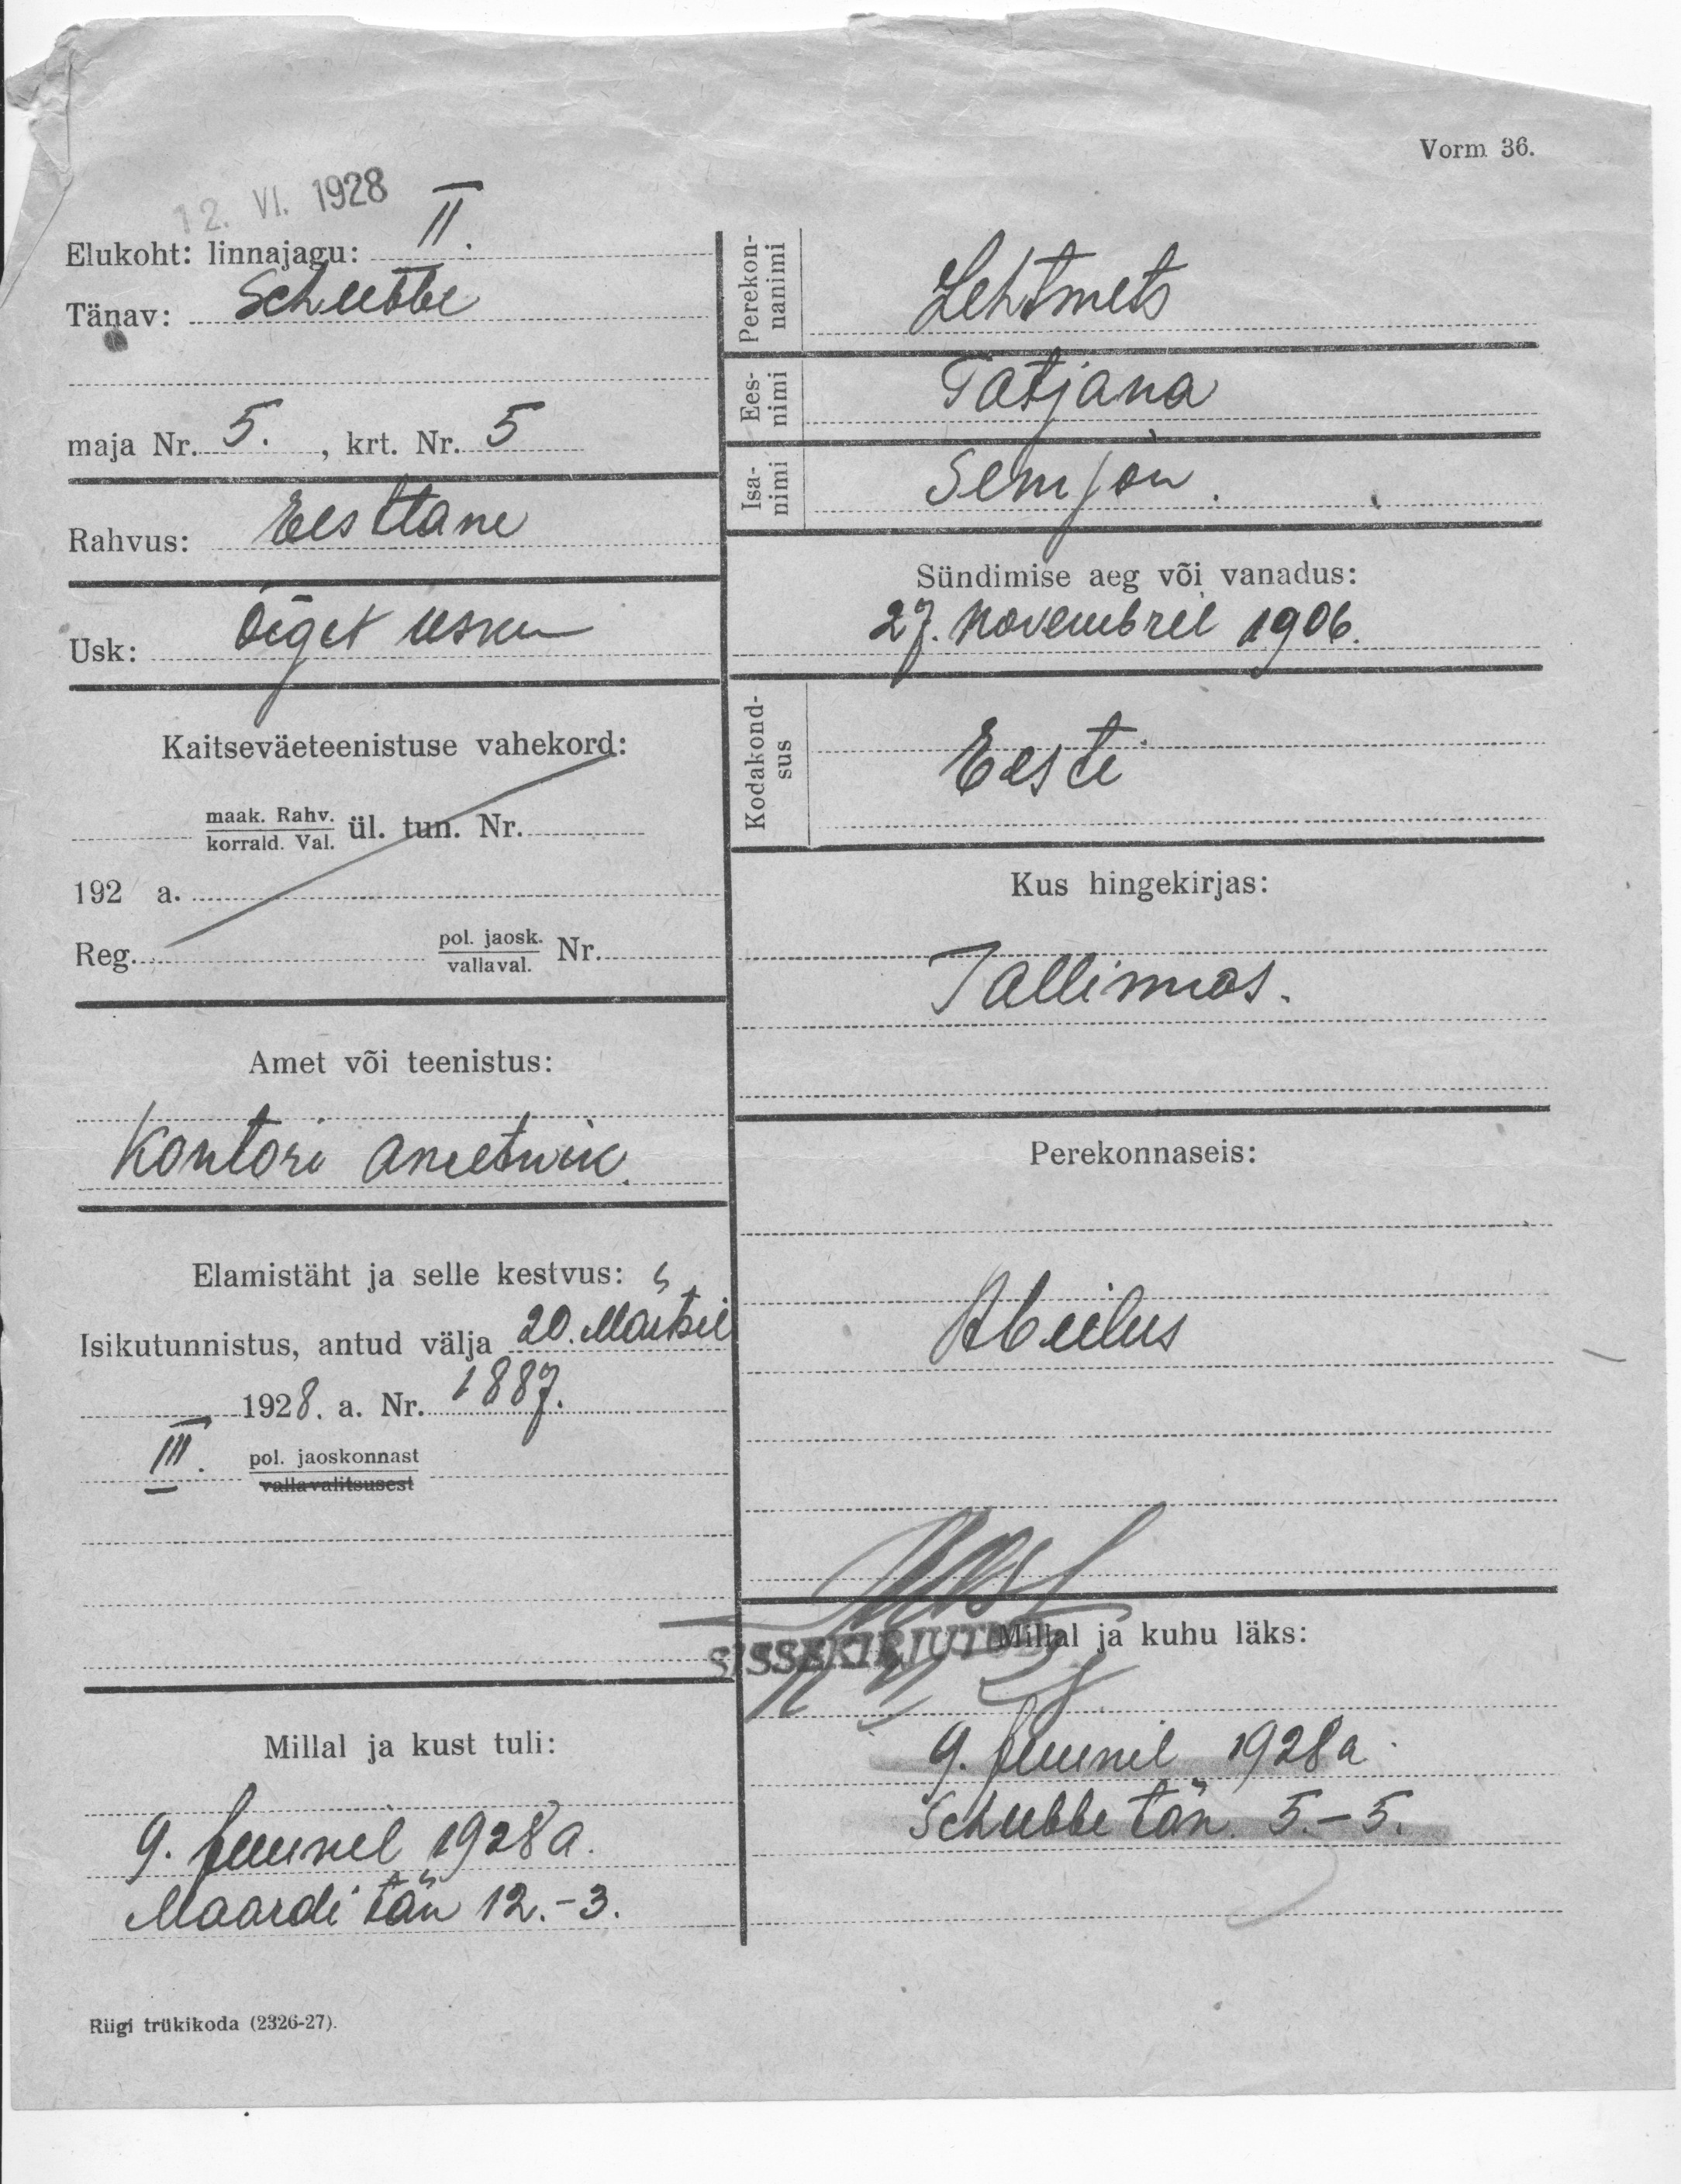 Vorm 36.
12. VI. 1928
Elukoht: linnajagu: II.
Tänav: Schubbe
maja Nr. 5. , krt. Nr. 5
Rahvus: Eestlane
Usk: Õiget usku
Kaitseväeteenistuse vahekord:
maak. Rahv.
korrald. Val. ül. tun. Nr.
192 a.
Reg. pol. jaosk.
vallaval. Nr.
Amet või teenistus:
Kontori ametnik.
Elamistäht ja selle kestvus:
Isikutunnistus, antud välja 20. Märtsil
1928. a. Nr. 1887.
III. pol. jaoskonnast
vallavalitsusest
Millal ja kust tuli:
9. juunil 1928 a.
Maardi tän 12.-3.
Riigi trükikoda (2326-27).
Perekon-
nanimi
Lehtmets
Ees-
nimi
Tatjana
Isa-
nimi
Semjon.
Sündimise aeg või vanadus:
27. Novembril 1906.
Kodakond-
sus
Eesti
Kus hingekirjas:
Tallinnas.
Perekonnaseis:
Abielus
SISSEKIRJUTUD
Millal ja kuhu läks:
9. juunil 1928 a.
Schubbe tän. 5.-5.